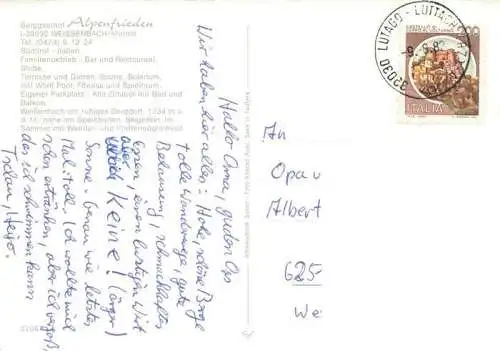 Berggasthof Alpenfrieden
I-39030 WEISSENBACH/Ahrntal
Tel. (0474) 6 12 24
Südtirol - Italien
Familienbetrieb - Bar und Restaurant,
Stube,
Terrasse und Garten, Sauna, Solarium,
Hot Whirl Pool, Fitness- und Spielraum.
Eigener Parkplatz - Alle Zimmer mit Bad und
Balkon.
Weißenbach ein ruhiges Bergdorf, 1334 m ü.
d. M. nahe am Speikboden, Skigebiet. Im
Sommer ein Wander- und Kletterparadies
Hallo Oma, guten Opa
Wir haben hier alles: Hohe, schöne Berge
tolle Wanderwege, gute
Behausung, schmackhaftes
Essen, einen lustigen Wirt
aber Keine! (ärger)
Sonne - genau wie letztes
Mal: toll. Ich wollte mich
schon ertränken, aber ich vergaß,
das ich schwimmen kann
Tschau, Heijo.
LUTAGO - LUTTACH
39030
ITALIA
An
Opa u
Albert
625
We